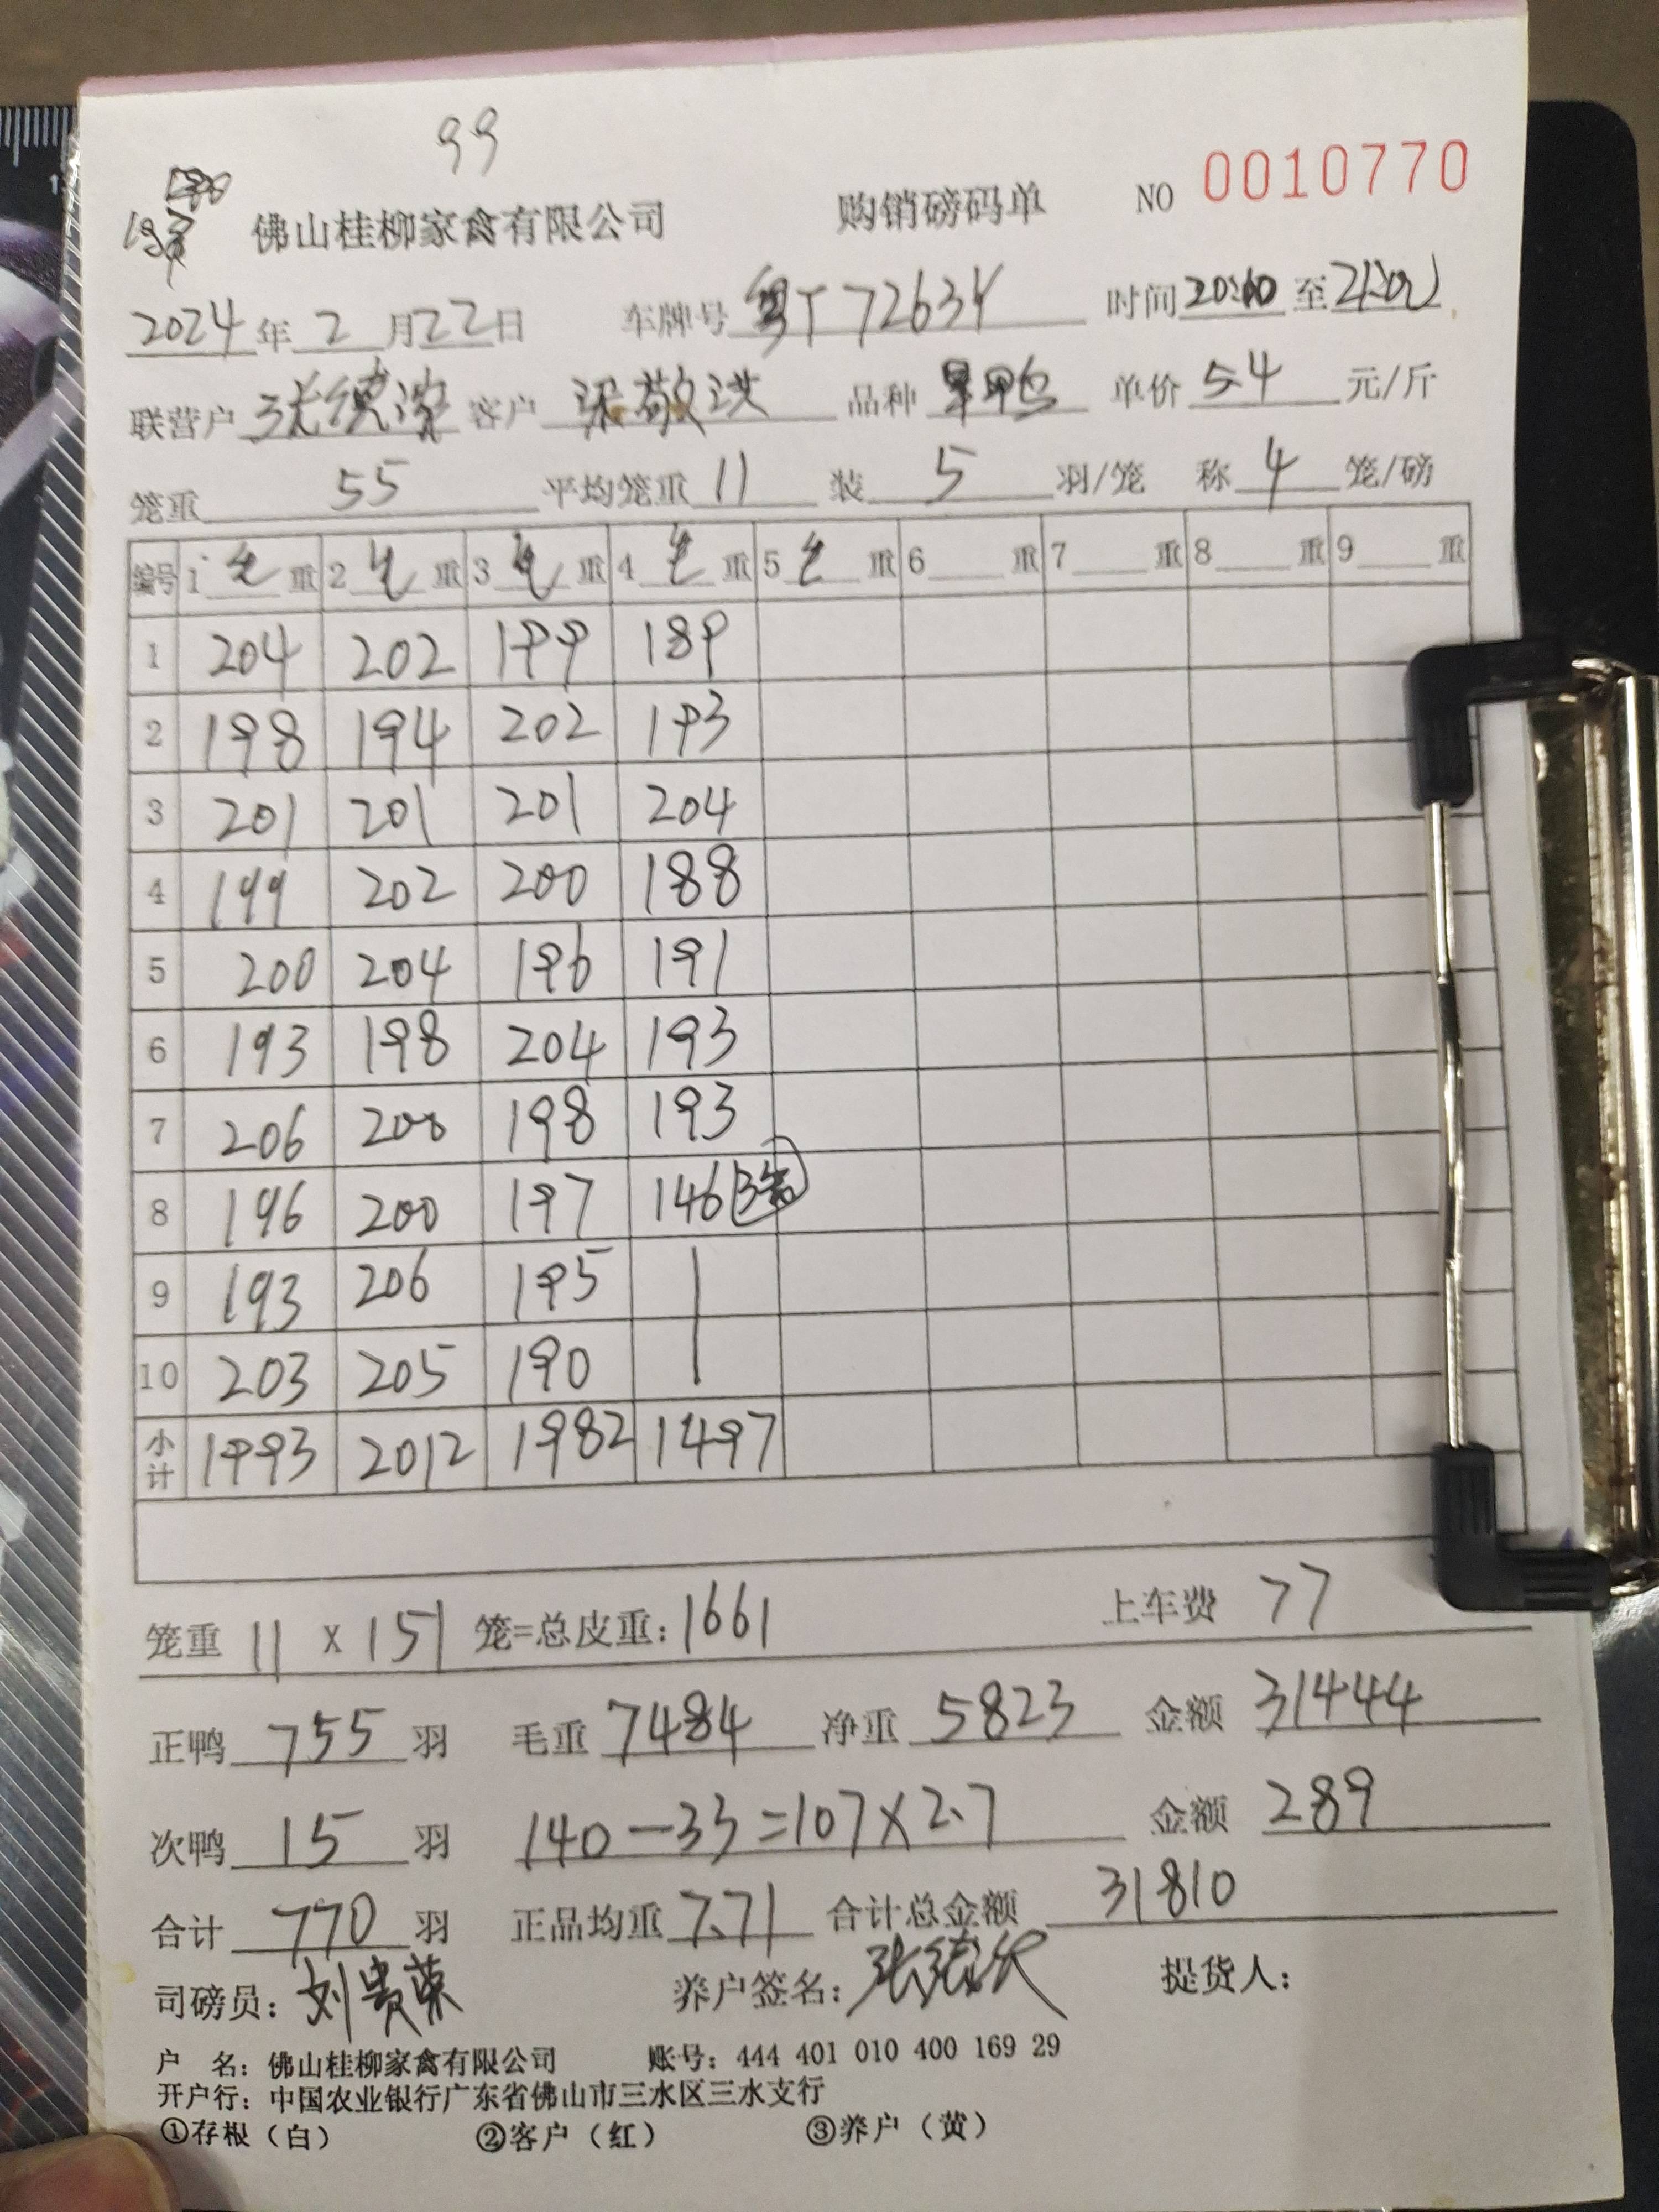 99
佛山桂柳家禽有限公司 购销磅码单 NO 0010770
2024年2月22日 车牌号 粤T72634 时间 20:10 至 21:00
联营户 张德深 客户 梁敬洪 品种 旱鸭 单价 5.4 元/斤
笼重 55 平均笼重 11 装 5 羽/笼 称 4 笼/磅
编号 1 毛 重 2 毛 重 3 毛 重 4 毛 重 5 毛 重 6 重 7 重 8 重 9 重
1 204 202 199 189
2 198 194 202 193
3 201 201 201 204
4 199 202 200 188
5 200 204 196 191
6 193 198 204 193
7 206 200 198 193
8 196 200 197 146 3笼
9 193 206 195
10 203 205 190
小计 1993 2012 1982 1497
笼重 11 x 151 笼=总皮重: 1661 上车费 77
正鸭 755 羽 毛重 7484 净重 5823 金额 31444
次鸭 15 羽 140-33=107×2.7 金额 289
合计 770 羽 正品均重 7.71 合计总金额 31810
司磅员: 刘贵荣 养户签名: 提货人:
户 名: 佛山桂柳家禽有限公司 账号: 444 401 010 400 169 29
开户行: 中国农业银行广东省佛山市三水区三水支行
①存根（白） ②客户（红） ③养户（黄）